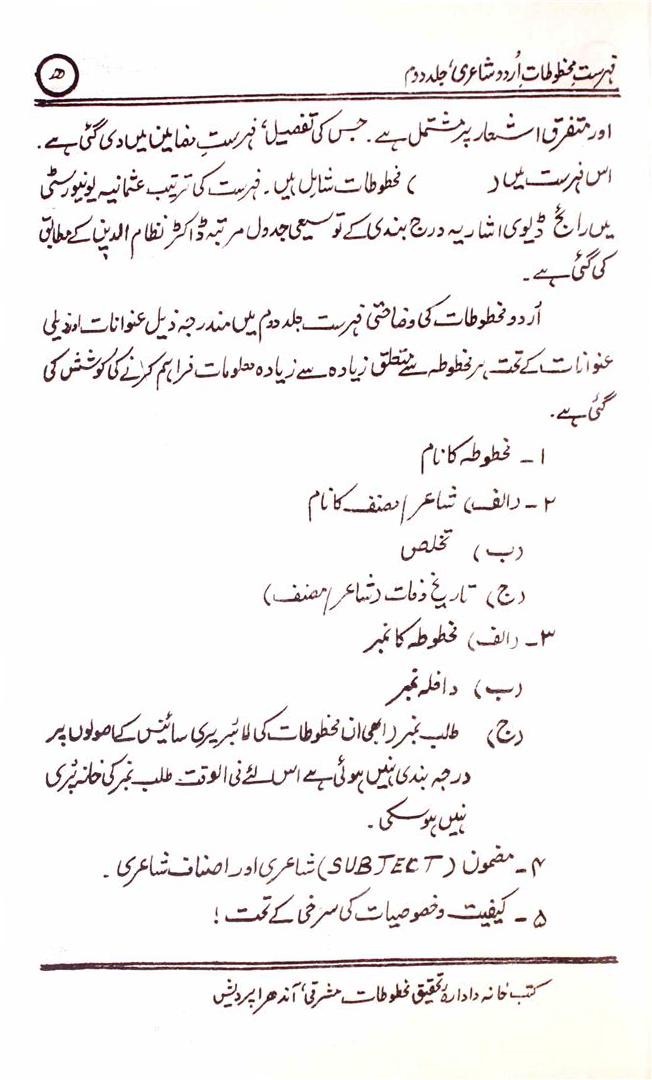 فہرست مخطوطات اُردو شاعری، جلد دوم
ھ
اور متفرق اشعار پر مشتمل ہے۔ جس کی تفصیل، فہرستِ مضامین میں دی گئی ہے۔
اس فہرست میں (          ) مخطوطات شامل ہیں۔ فہرست کی ترتیب عثمانیہ یونیورسٹی
میں رائج ڈیوی اشاریہ درجہ بندی کے توسیعی جدول مرتبہ ڈاکٹر نظام الدین کے مطابق
کی گئی ہے۔
اُردو مخطوطات کی وضاحتی فہرست جلد دوم میں مندرجہ ذیل عنوانات اور ذیلی
عنوانات کے تحت ہر مخطوطہ سے متعلق زیادہ سے زیادہ معلومات فراہم کرنے کی کوشش کی
گئی ہے۔
۱۔ مخطوطہ کا نام
۲۔ (الف) شاعر/مصنف کا نام
(ب) تخلص
(ج) تاریخ وفات (شاعر/مصنف)
۳۔ (الف) مخطوطہ کا نمبر
(ب) داخلہ نمبر
(ج) طلب نمبر (ابھی ان مخطوطات کی لائبریری سائنس کے اصولوں پر
درجہ بندی نہیں ہوئی ہے اس لئے فی الوقت طلب نمبر کی خانہ پُری
نہیں ہوسکی۔
۴۔ مضمون (SUBJECT) شاعری اور اصناف شاعری۔
۵۔ کیفیت و خصوصیات کی سرخی کے تحت!
کتب خانہ و ادارہ تحقیق مخطوطات مشرقی، آندھرا پردیش